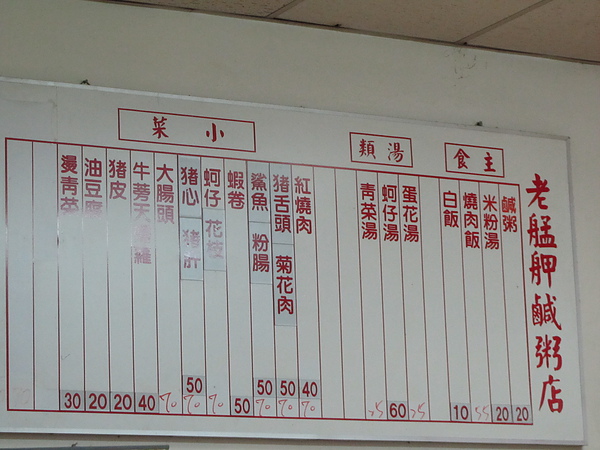 老艋舺鹹粥店
主食
鹹粥 20
米粉湯 20
燒肉飯 55
白飯 10
湯類
蛋花湯 25
蚵仔湯 60
青菜湯 25
小菜
紅燒肉 40 70
豬舌頭 菊花肉 50 70
鯊魚 粉腸 50 70
蝦卷 50
蚵仔 花枝 70
豬心 豬肝 50 70
大腸頭 70
牛蒡天婦羅 40
豬皮 20
油豆腐 20
燙青菜 30